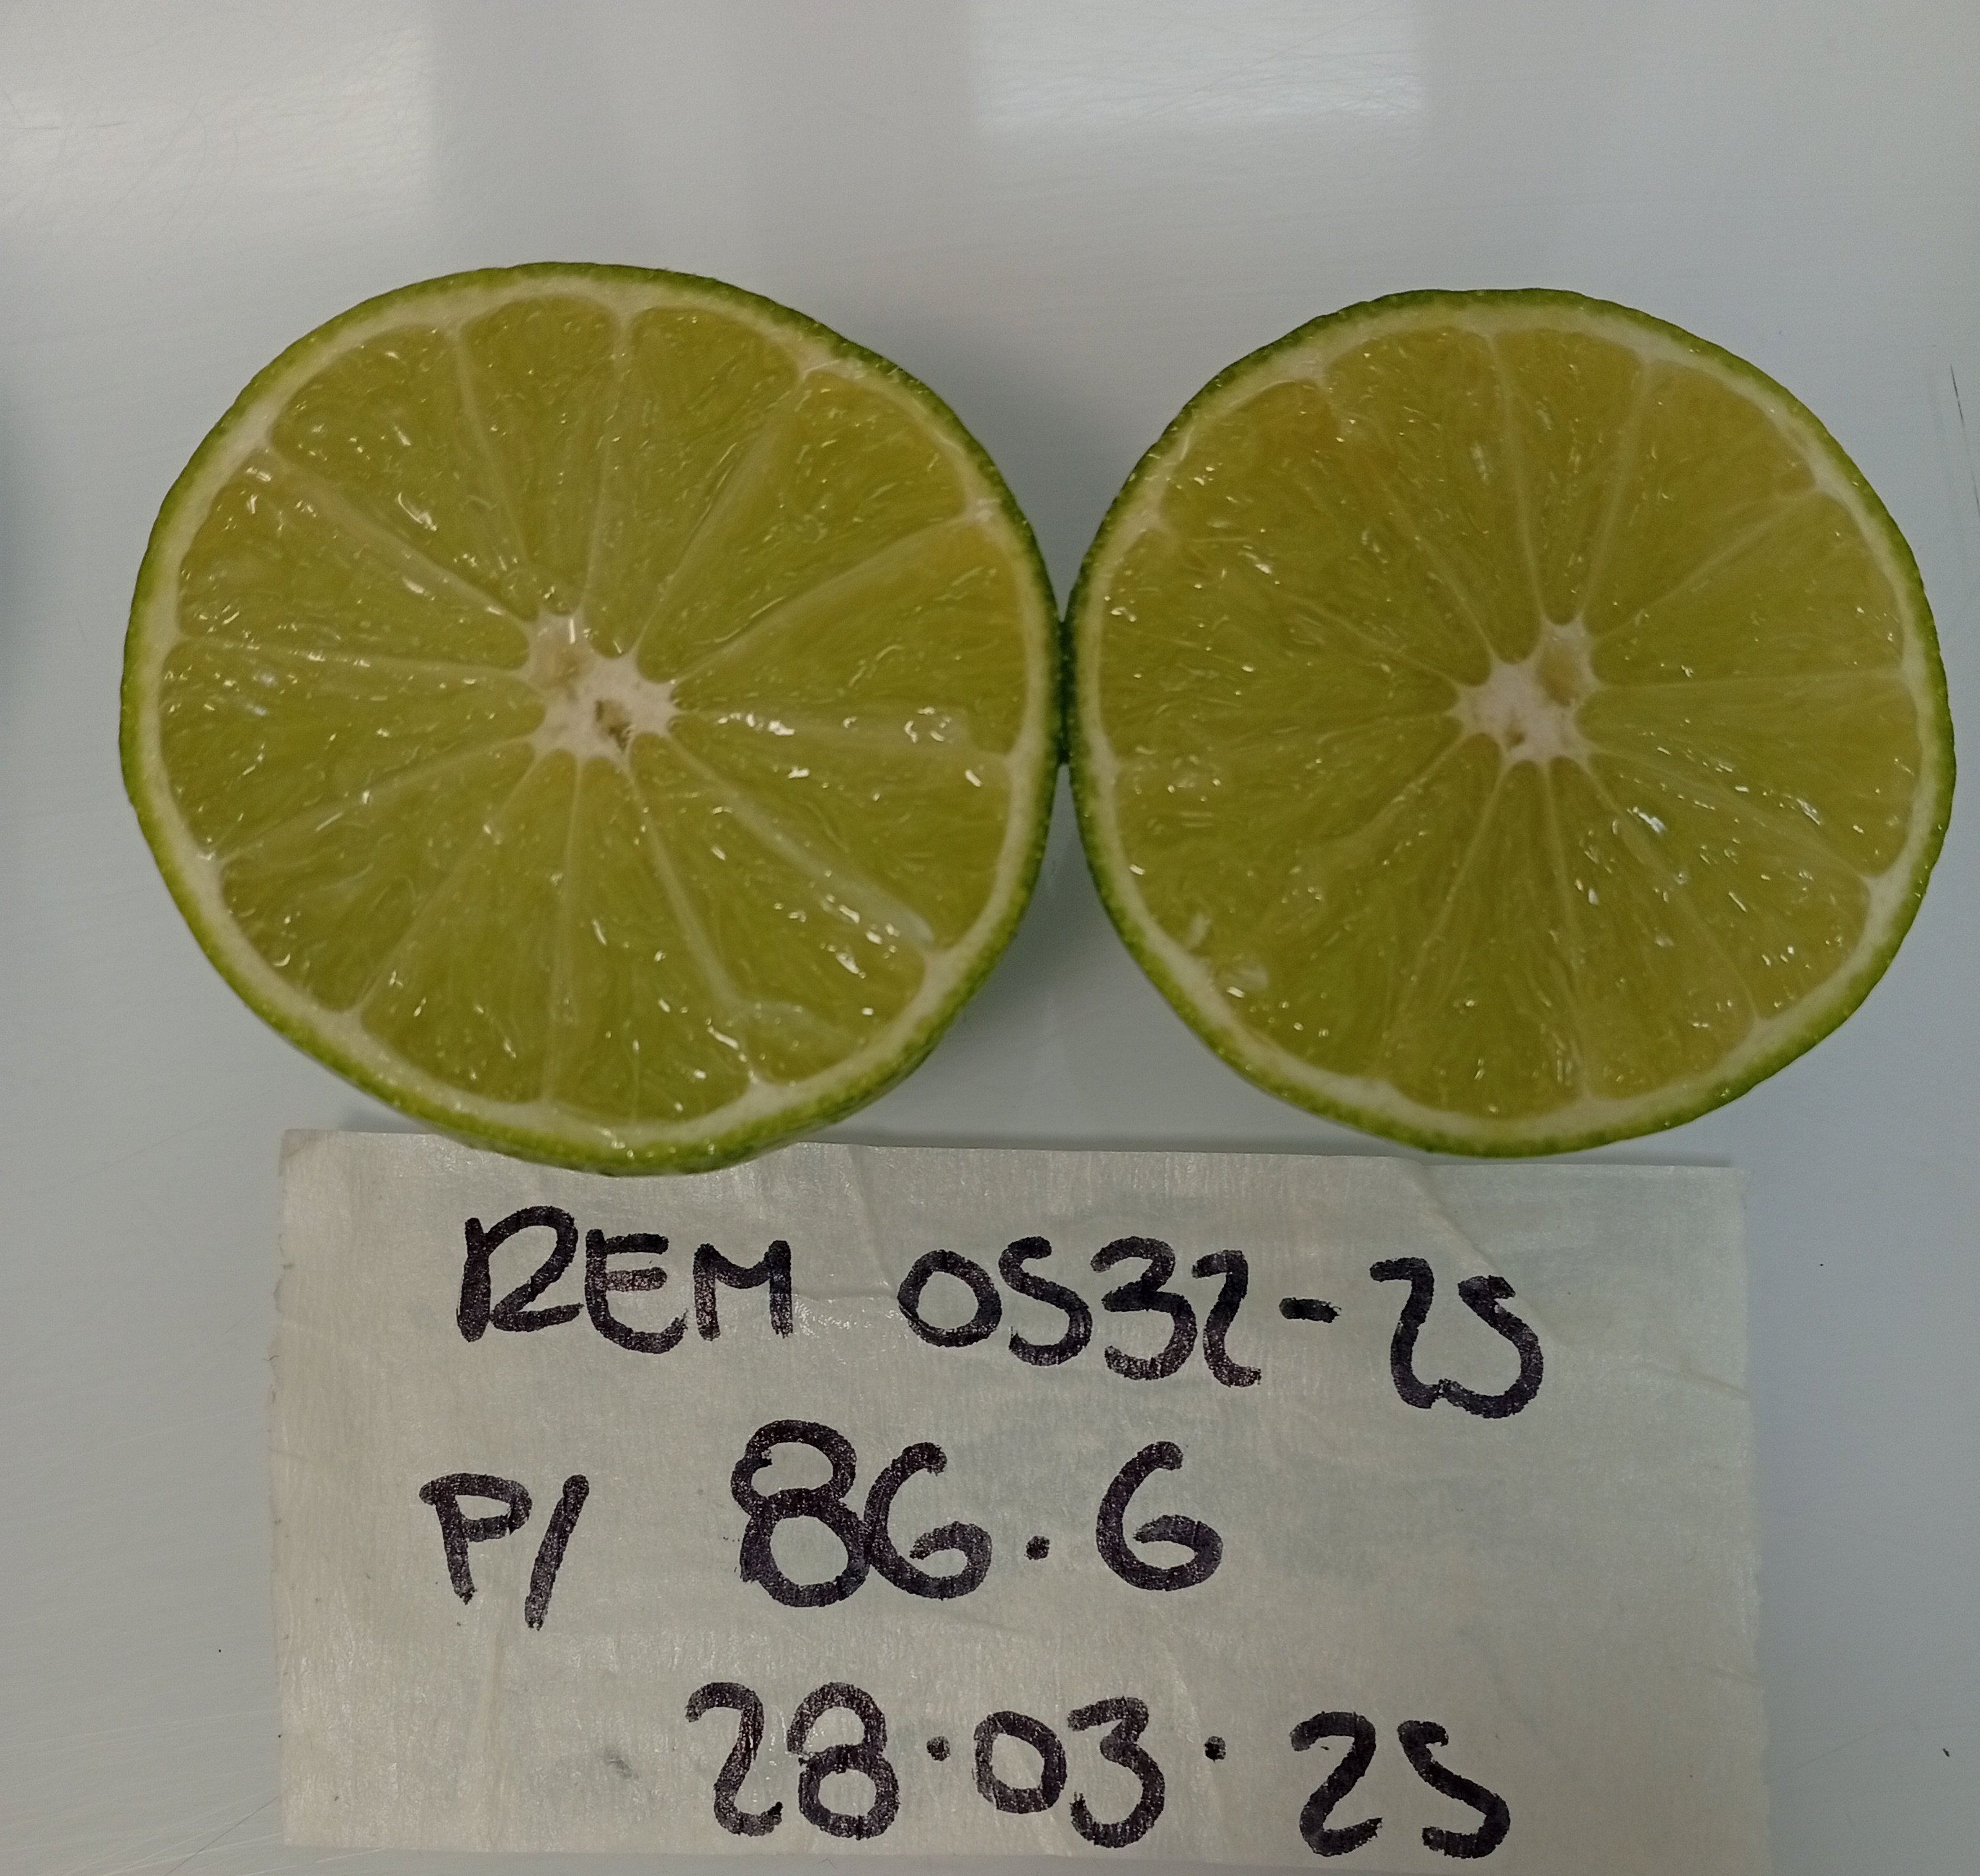 REM 0532-25
P/ 86.6
28.03.25